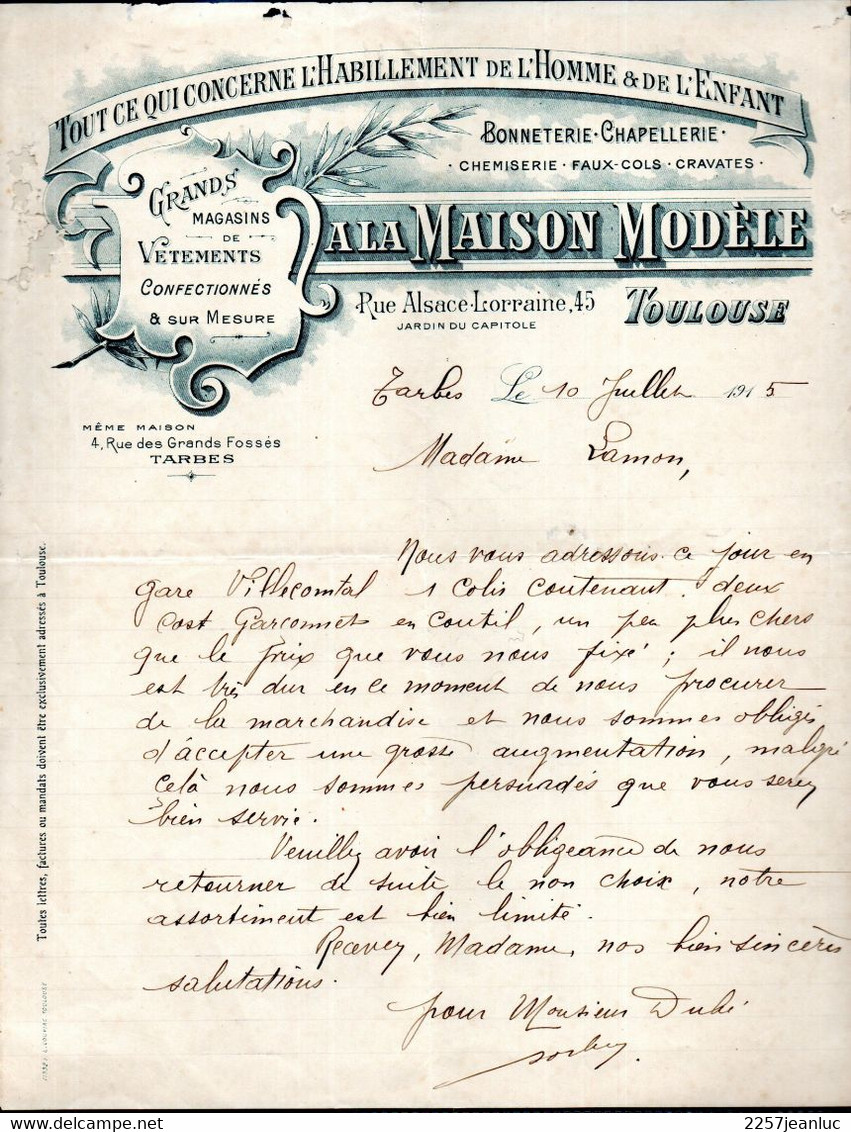 TOUT CE QUI CONCERNE L'HABILLEMENT DE L'HOMME & DE L'ENFANT
BONNETERIE · CHAPELLERIE ·
· CHEMISERIE · FAUX-COLS · CRAVATES ·
GRANDS
MAGASINS
DE
VÊTEMENTS
CONFECTIONNÉS
& SUR MESURE
A LA MAISON MODÈLE
Rue Alsace-Lorraine, 45
TOULOUSE
JARDIN DU CAPITOLE
Tarbes Le 10 Juillet 1915
MÊME MAISON
4, Rue des Grands Fossés
TARBES
Madame Lamon,
Nous vous adressons ce jour en
gare Villecomtal 1 colis contenant deux
cost Garçonnets en coutil, un peu plus chers
que le prix que vous nous fixé ; il nous
est très dur en ce moment de nous procurer
de la marchandise et nous sommes obligés
d'accepter une grosse augmentation, malgré
celà nous sommes persuadés que vous serez
bien servie.
Veuillez avoir l'obligeance de nous
retourner de suite le non choix, notre
assortiment est bien limité.
Recevez, Madame, nos bien sincères
salutations.
pour Monsieur Dubé
Toutes lettres, factures ou mandats doivent être exclusivement adressés à Toulouse.
delcampe.net
2257jeanluc